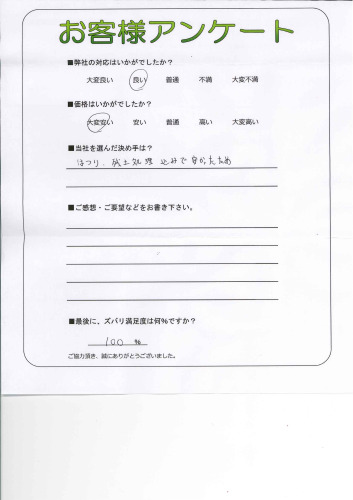 お客様アンケート
■弊社の対応はいかがでしたか？
大変良い 良い 普通 不満 大変不満
■価格はいかがでしたか？
大変安い 安い 普通 高い 大変高い
■当社を選んだ決め手は？
はつり、残土処理 込みで安かったため
■ご感想・ご要望などをお書き下さい。
■最後に、ズバリ満足度は何%ですか？
100 %
ご協力頂き、誠にありがとうございました。